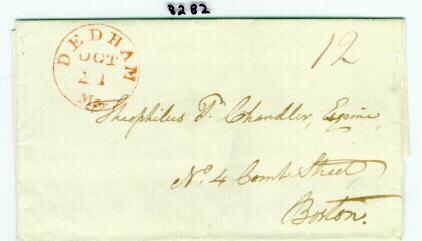 8282
DEDHAM
OCT
21
Ms
12
Theophilus P. Chandler, Esquire,
No. 4 Court Street,
Boston.